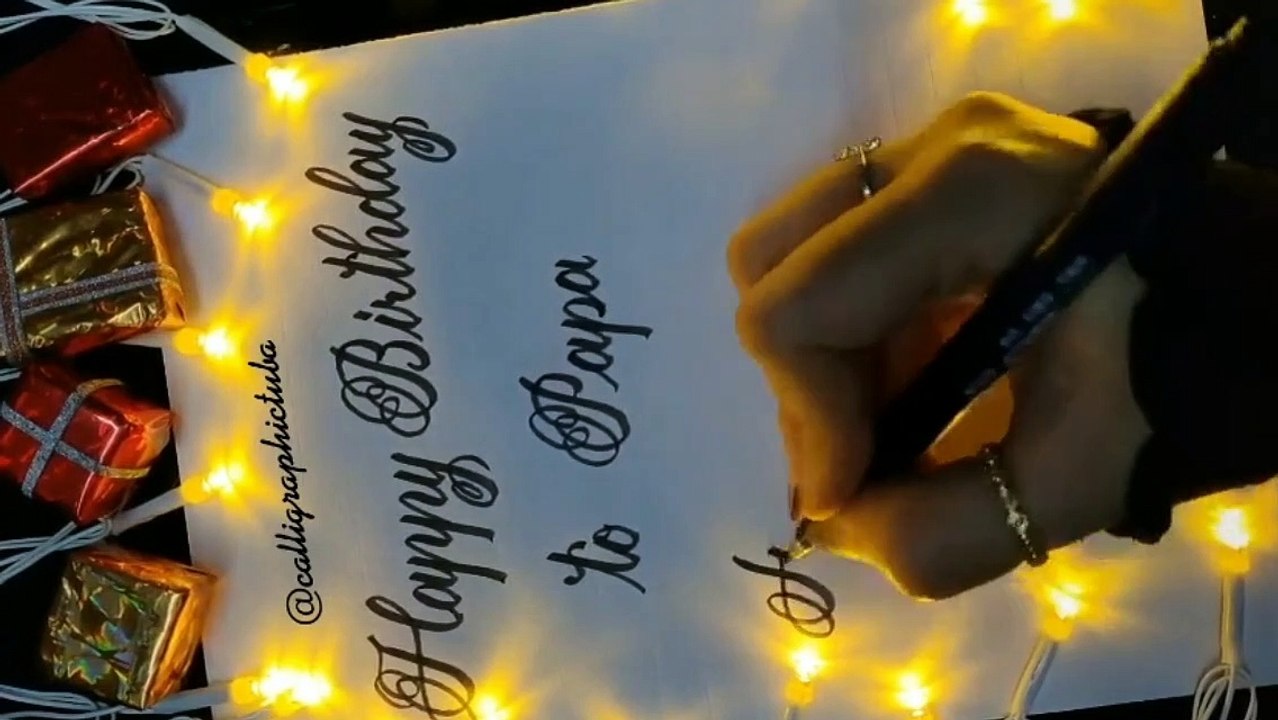 @calligraphictuba
Happy Birthday
to Papa